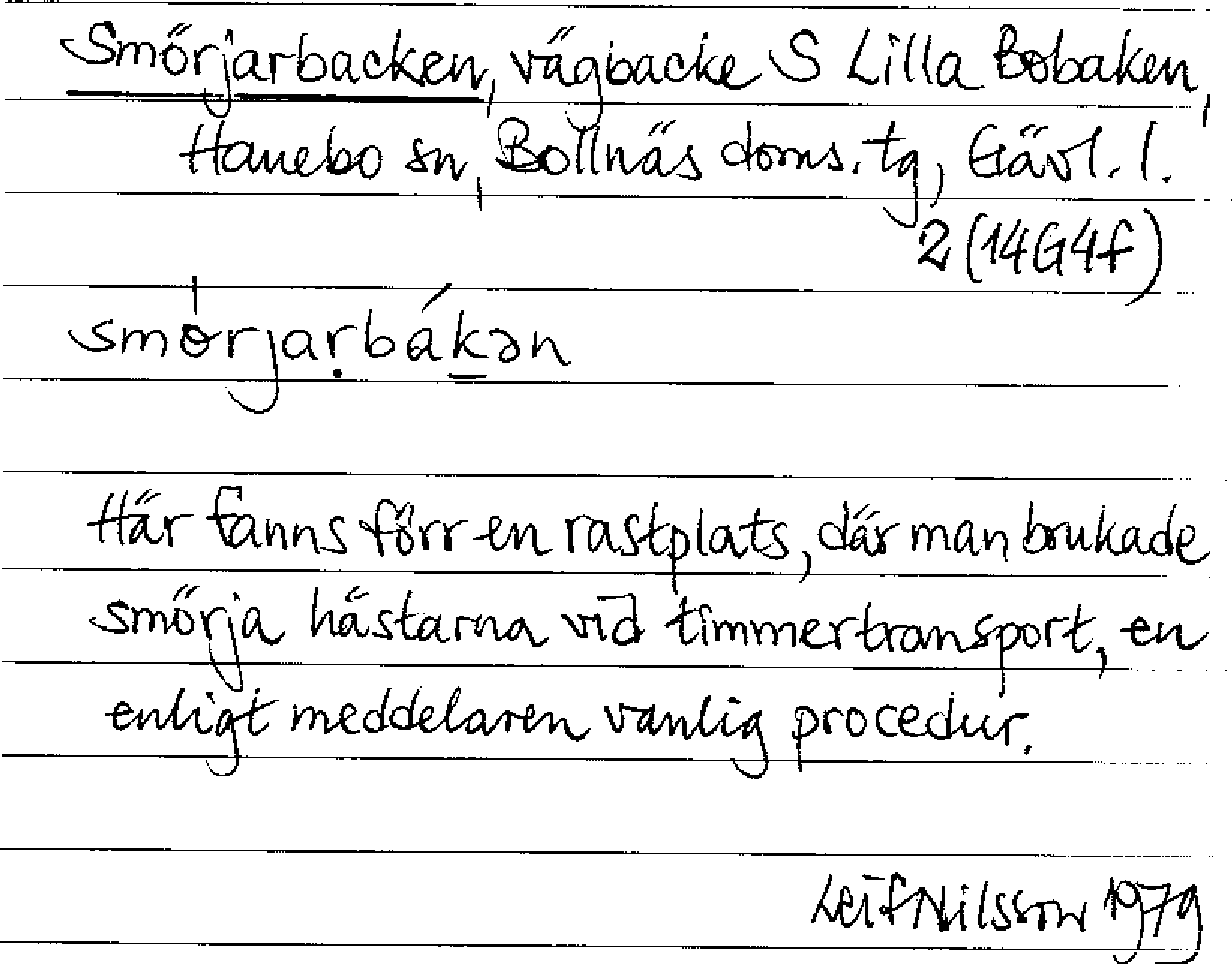 Smörjarbacken, vägbacke S Lilla Bobaken,
Hanebo sn, Bollnäs doms. tg, Gävl. l.
2 (14G4f)
smörjarbákən
Här fanns förr en rastplats, där man brukade
smörja hästarna vid timmertransport, en
enligt meddelaren vanlig procedur.
Leif Nilsson 1979